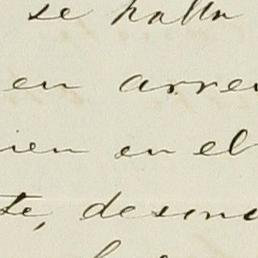 se halla
en arren
ien en el
te, desone